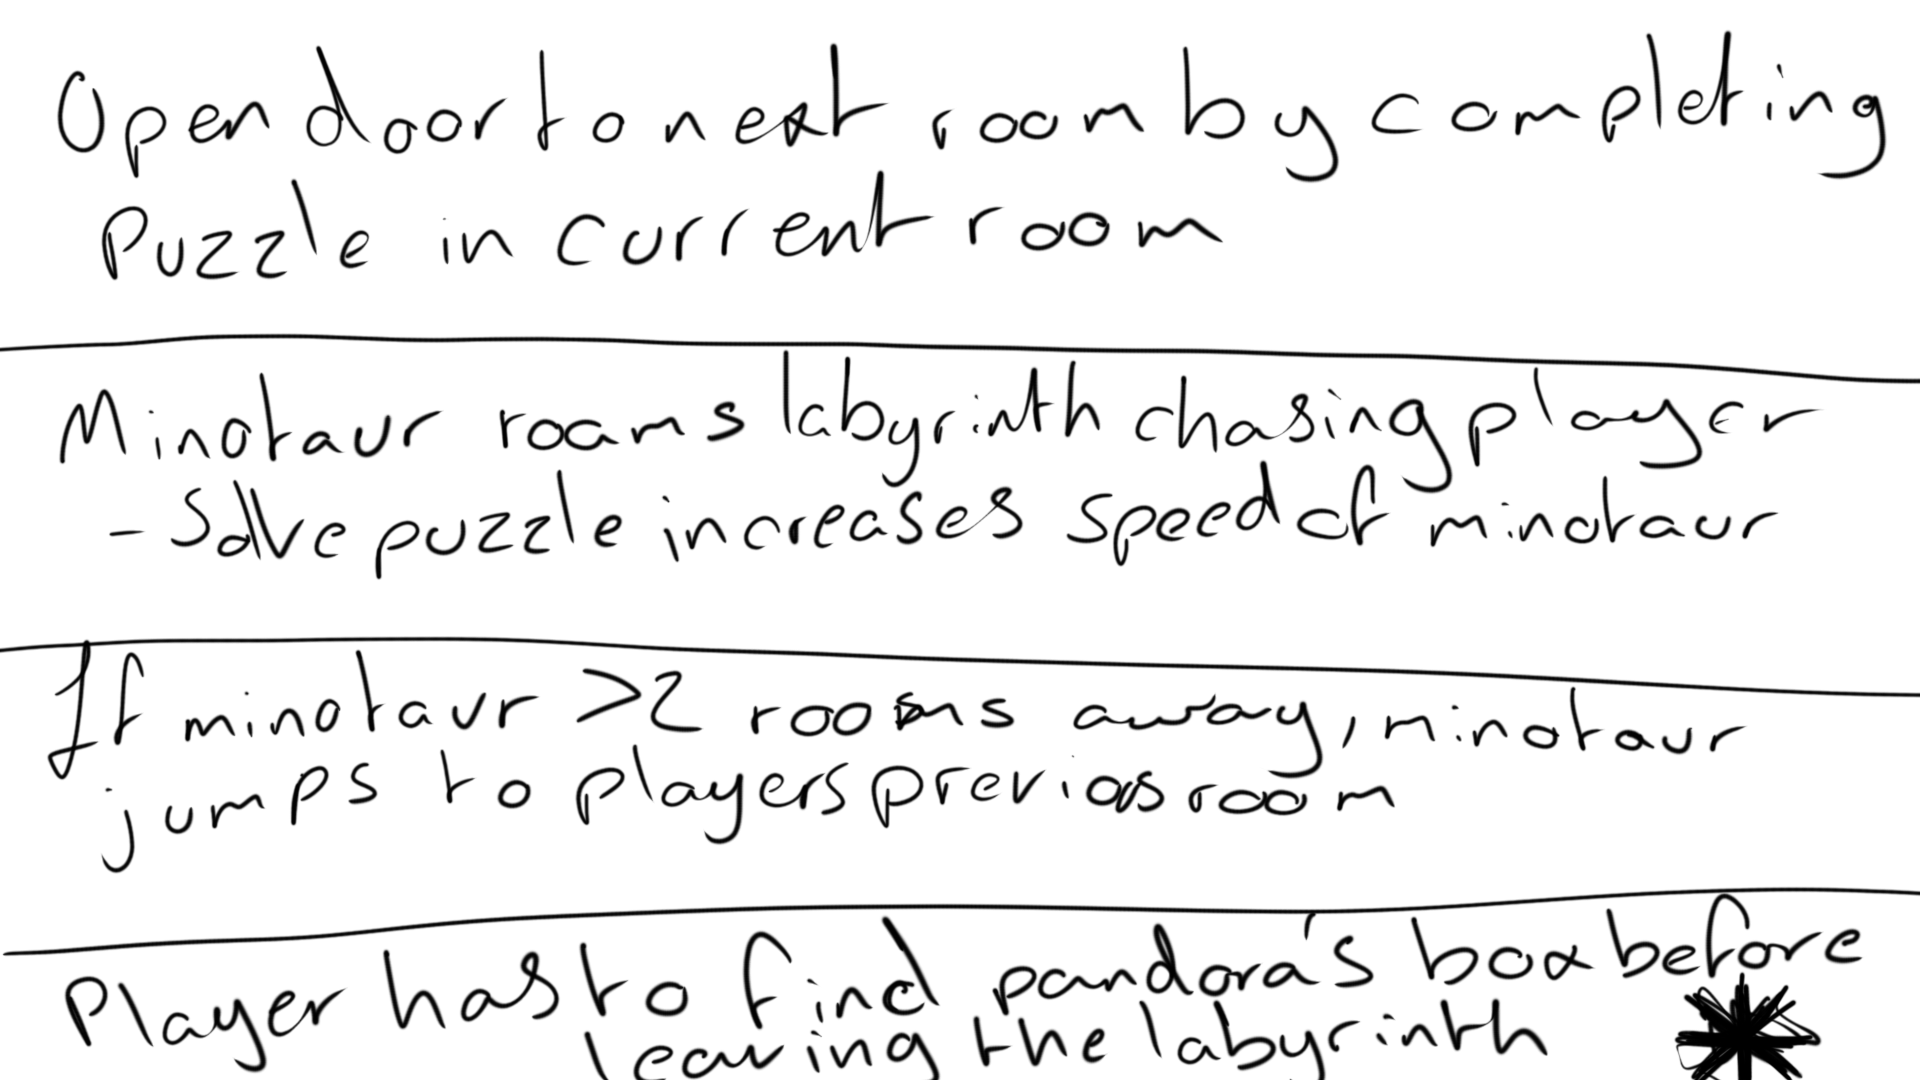 Open door to next room by completing
Puzzle in current room
Minotaur roams labyrinth chasing player
- Solve puzzle increases speed of minotaur
If minotaur >2 rooms away, minotaur
jumps to players previous room
Player has to find pandora's box before
leaving the labyrinth